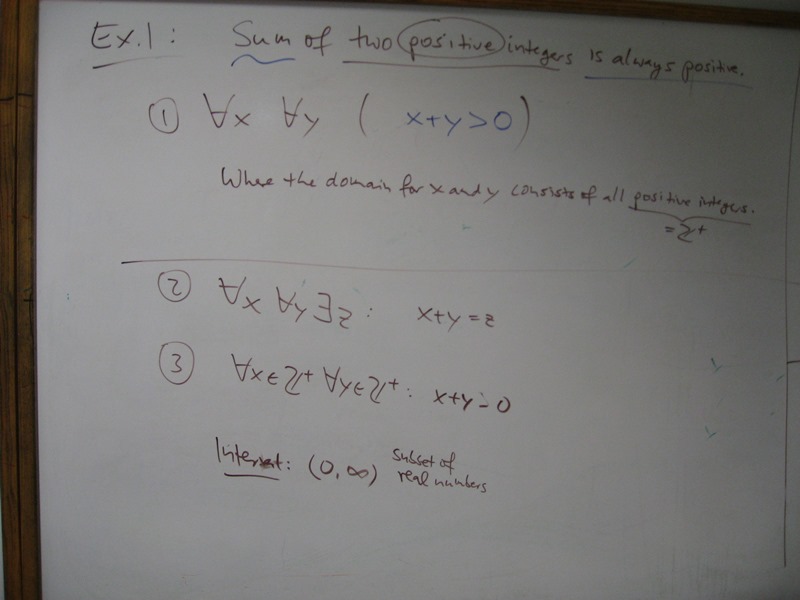 Ex.1: Sum of two positive integers is always positive.
① ∀x ∀y ( x+y>0 )
Where the domain for x and y consists of all positive integers.
= ℤ⁺
② ∀x ∀y ∃z : x+y=z
③ ∀x∈ℤ⁺ ∀y∈ℤ⁺ : x+y - 0
: (0, ∞) subset of
real numbers